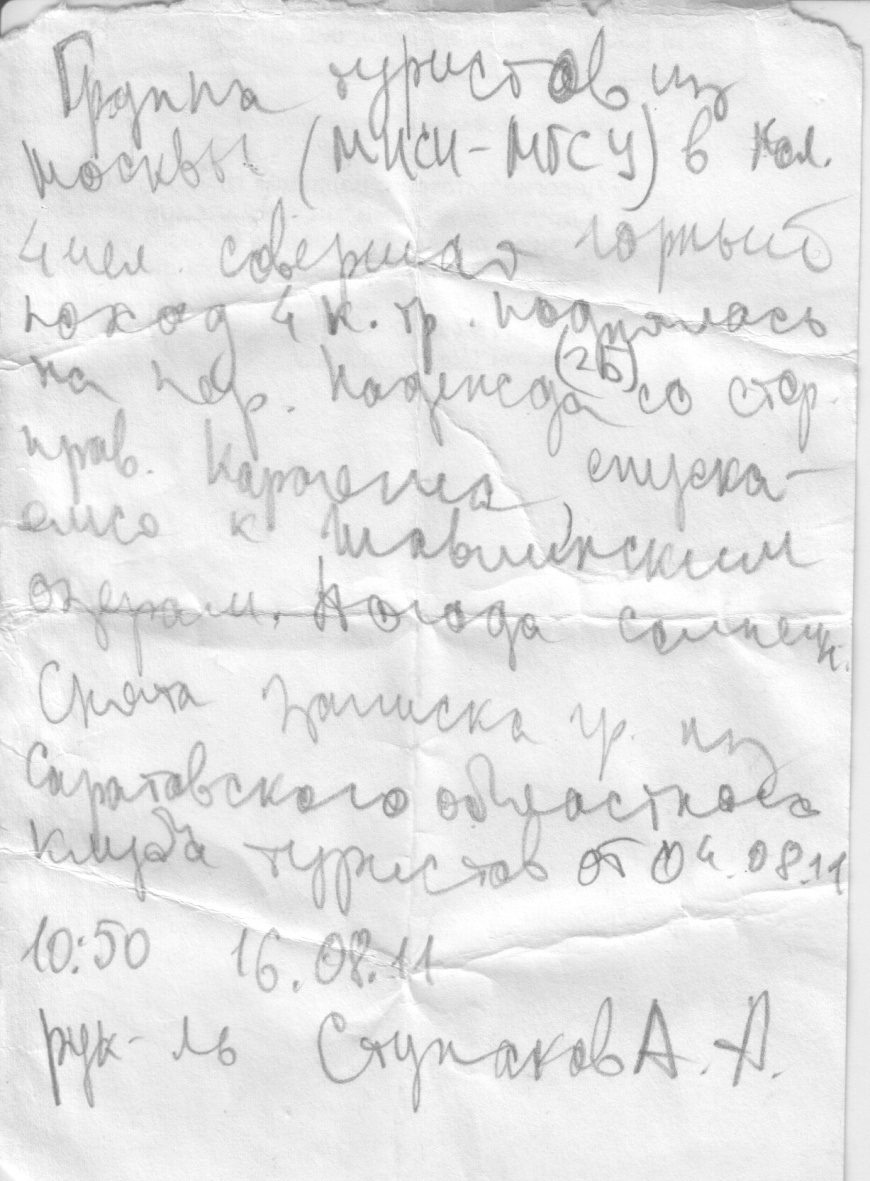 Группа туристов из
Москвы (МИСИ-МГСУ) в кол.
4 чел. совершая горный
поход 4 к.тр. поднялась
на пер. Надежда (2Б) со стор.
прав. Карагема, спуска-
емся к Шавлинским
озерам. Погода солнечн.
Снята записка гр. из
Саратовского областного
клуба туристов от 04.08.11
10:50 16.08.11
рук-ль Ступаков А. А.